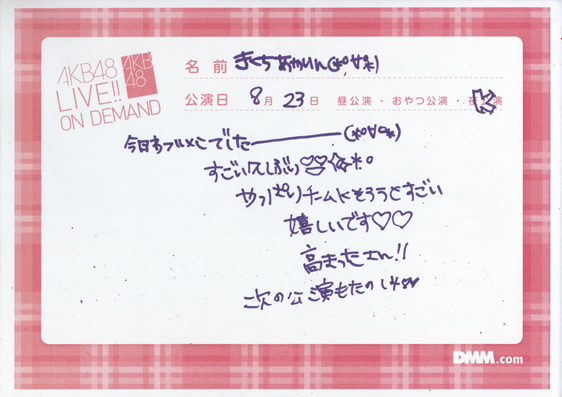 AKB48
LIVE!!
ON DEMAND
AKB
48
名前 まくちあかりん(*°∀°*)
公演日 8月23日 昼公演・おやつ公演・夜公演
今日わフルメンでした――――(*°∀°*)
すごい久しぶり♡♡☆*。
やっぱりチームKそろうとすごい
嬉しいです♡♡
高まったさん!!
次の公演もたのしみ♡
DMM.com